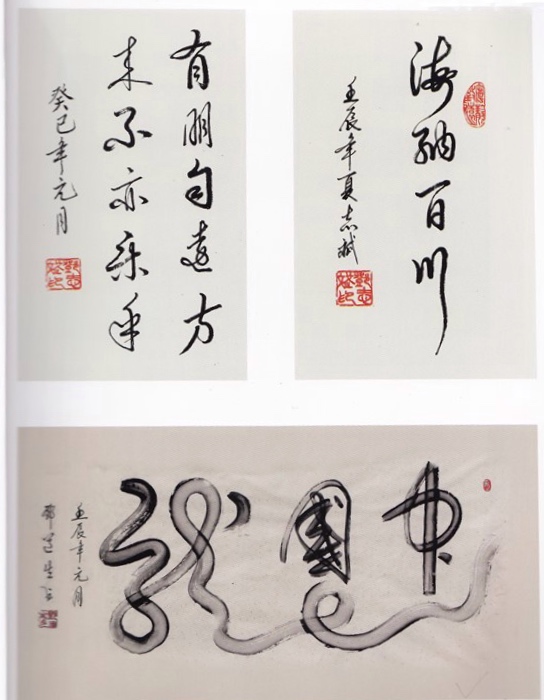 有朋自遠方
来不亦乐乎
癸巳年元月
海納百川
壬辰年夏志
中國龍
壬辰年元月